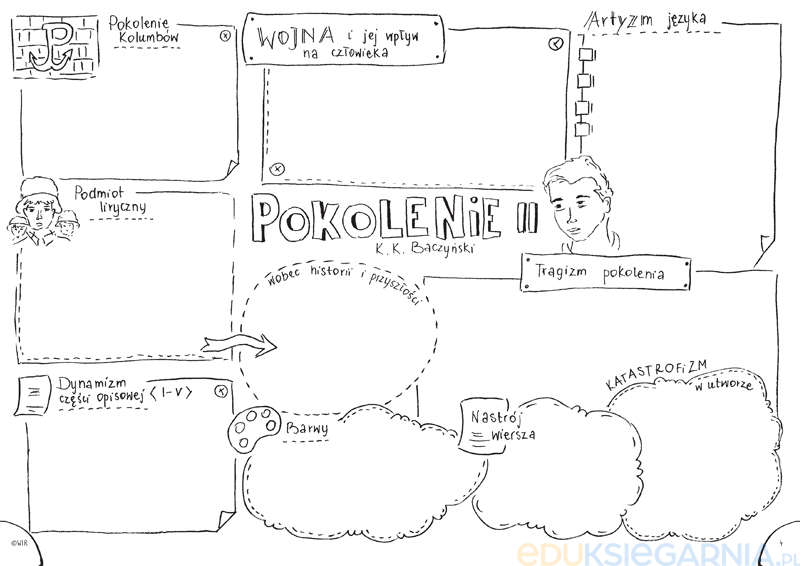 Pokolenie
Kolumbów
WOJNA i jej wpływ
na człowieka
Artyzm języka
Podmiot
liryczny
POKOLENIE II
K. K. Baczyński
wobec historii i przyszłości
Tragizm pokolenia
Dynamizm
części opisowej <I-V>
Barwy
Nastrój
wiersza
KATASTROFIZM
w utworze
©WIR
4
EDUKSIEGARNIA.PL